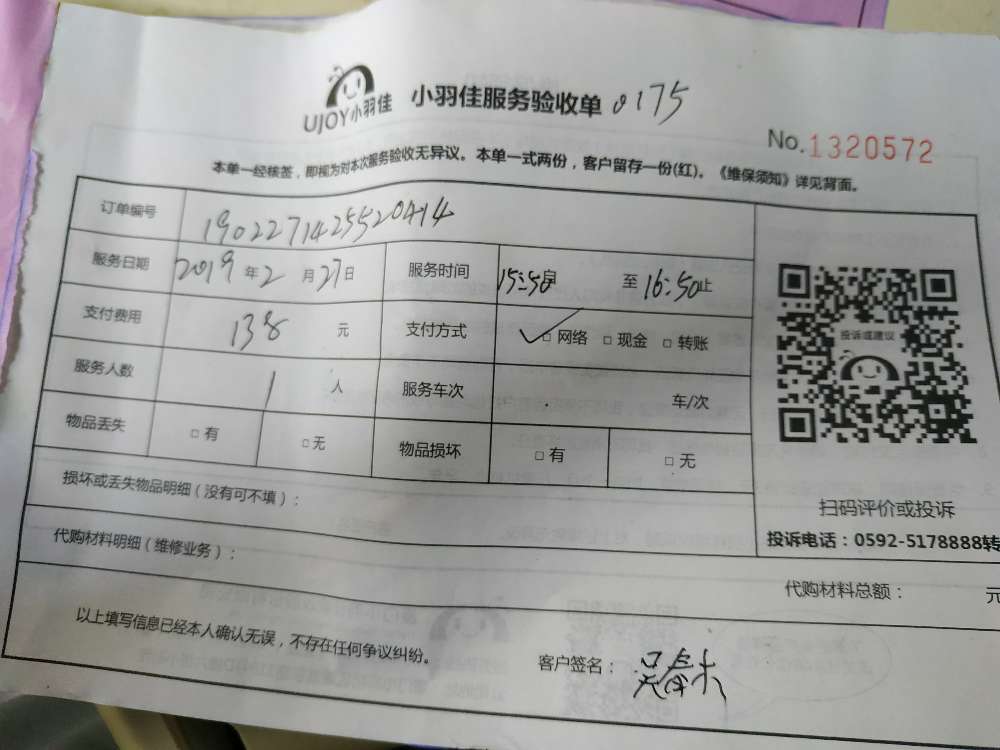 UJOY小羽佳 小羽佳服务验收单 0175
No.1320572
本单一经核签，即视为对本次服务验收无异议。本单一式两份，客户留存一份(红)。《维保须知》详见背面。
订单编号 1902271425520414
服务日期 2019年2月27日 服务时间 15:50 至 16:50止
支付费用 138 元 支付方式 □网络 □现金 □转账
投诉或建议
服务人数 1 人 服务车次 车/次
物品丢失 □有 □无 物品损坏 □有 □无
损坏或丢失物品明细（没有可不填）：
扫码评价或投诉
投诉电话：0592-5178888转
代购材料明细（维修业务）：
代购材料总额： 元
以上填写信息已经本人确认无误，不存在任何争议纠纷。
客户签名：